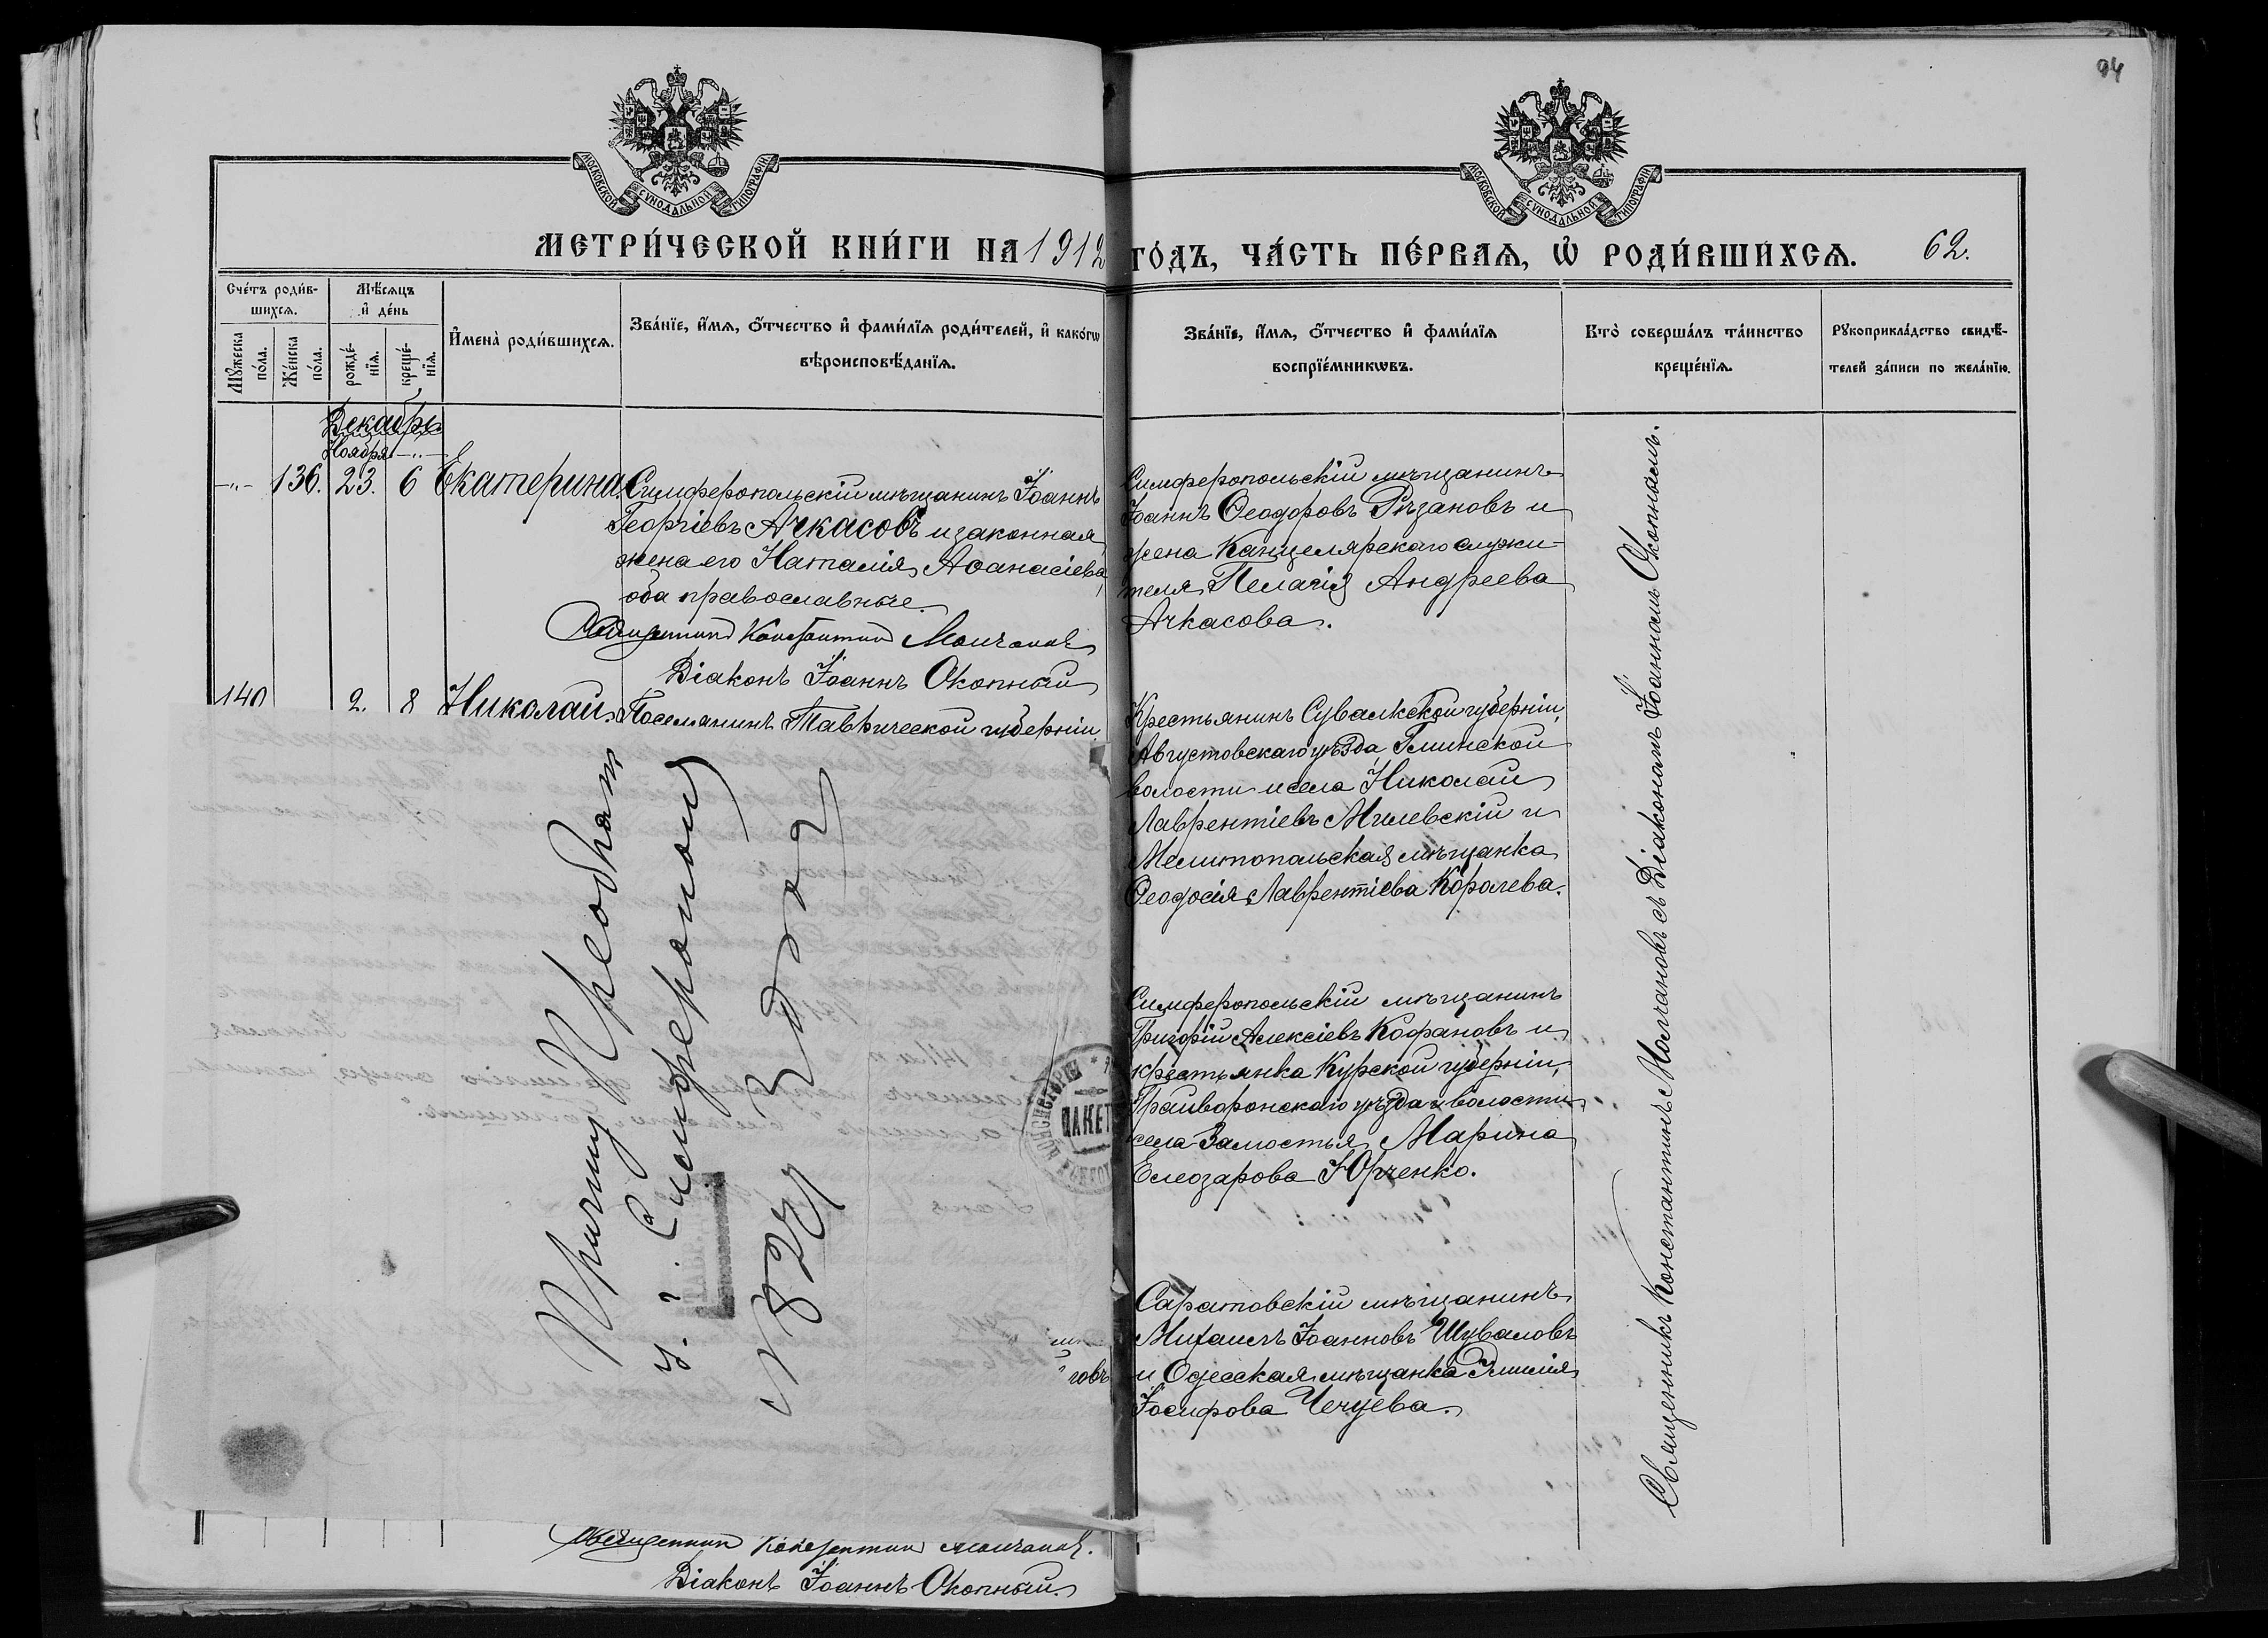 94
МОСКОВСКОЙ СѴНОДАЛЬНОЙ ТИПОГРАФІИ
МОСКОВСКОЙ СѴНОДАЛЬНОЙ ТИПОГРАФІИ
МЕТРИ́ЧЕСКОЙ КНИ́ГИ НА 1912
ГО́ДЪ, ЧА́СТЬ ПЕ́РВАѦ, Ѡ҆ РОДИ́ВШИХСѦ. 62.
Сче́тъ роди́в-
шихсѧ.
Мꙋ́жеска по́ла.
Же́нска по́ла.
Мѣ́сѧцъ и҆ де́нь
рожде́-нїѧ.
креще́-нїѧ.
И҆мена̀ роди́вшихсѧ.
Зва́нїе, и҆́мѧ, ѻ҆́тчество и҆ фами́лїѧ роди́телей, и҆ како́гѡ
вѣроисповѣ́данїѧ.
Зва́нїе, и҆́мѧ, ѻ҆́тчество и҆ фами́лїѧ
воспрїе́мникѡвъ.
Кто̀ соверша́лъ та́инство
креще́нїѧ.
Рꙋкоприкла́дство свидѣ́-
телей за́писи по жела́нїю.
Декабрь
Ноября -"-
-"- 136. 23. 6 Екатерина
Симферопольскій мѣщанинъ Іоаннъ
Георгіевъ Ачкасовъ и законная
жена его Наталія Аѳанасіева,
оба православные.
Священникъ Константинъ Молчановъ
Діаконъ Іоаннъ Окопный
Симферопольскій мѣщанинъ
Іоаннъ Ѳеодоровъ Рѣзановъ и
жена Канцелярскаго служи-
теля Пелагія Андреева
Ачкасова.
140 2. 8 Николай
Поселянинъ Таврической губерніи
Крестьянинъ Сувалкской губерніи,
Августовскаго уѣзда, Глинской
волости и села Николай
Лаврентіевъ Милевскій и
Мелитопольская мѣщанка
Ѳеодосія Лаврентіева Королева.
Симферопольскій мѣщанинъ
Григорій Алексіевъ Кофановъ и
крестьянка Курской губерніи,
Грайворонскаго уѣзда и волости
села Замостья Марина
Елеозарова Юрченко.
Саратовскій мѣщанинъ
Михаилъ Іоанновъ Шуваловъ
и Одесская мѣщанка Эмилія
Іосифова Чечуева.
Священникъ Константинъ Молчановъ съ Діакономъ Іоанномъ Окопнымъ.
Причту Преображ
г. Симферополь
№ 821
ПАКЕТ
говъ
Священникъ Константинъ Молчановъ.
Діаконъ Іоаннъ Окопный.